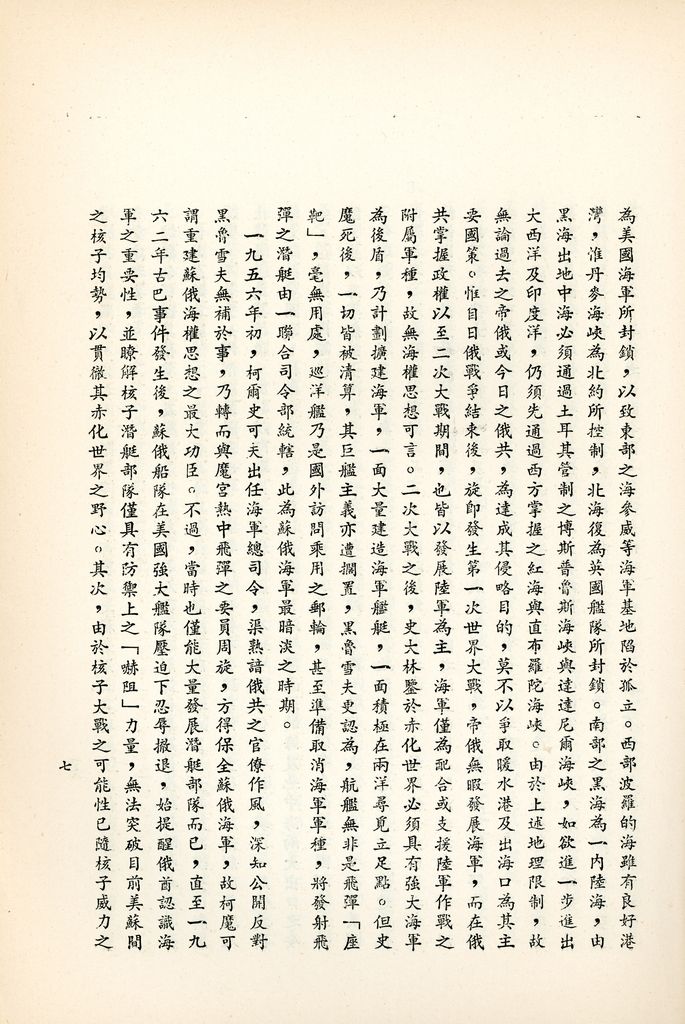 為美國海軍所封鎖，以致東部之海參威等海軍基地陷於孤立。西部波羅的海雖有良好港
灣，惟丹麥海峽為北約所控制，北海復為英國艦隊所封鎖。南部之黑海為一內陸海，由
黑海出地中海必須通過土耳其管制之博斯普魯斯海峽與達達尼爾海峽，如欲進一步進出
大西洋及印度洋，仍須先通過西方掌握之紅海與直布羅陀海峽。由於上述地理限制，故
無論過去之帝俄或今日之俄共，為達成其侵略目的，莫不以爭取暖水港及出海口為其主
要國策。惟自日俄戰爭結束後，旋即發生第一次世界大戰，帝俄無暇發展海軍，而在俄
共掌握政權以至二次大戰期間，也皆以發展陸軍為主，海軍僅為配合或支援陸軍作戰之
附屬軍種，故無海權思想可言。二次大戰之後，史大林鑒於赤化世界必須具有強大海軍
為後盾，乃計劃擴建海軍，一面大量建造海軍艦艇，一面積極在兩洋尋覓立足點。但史
魔死後，一切皆被清算，其巨艦主義亦遭擱置，黑魯雪夫史認為，航艦無非是飛彈「座
靶」，毫無用處，巡洋艦乃是國外訪問乘用之郵輪，甚至準備取消海軍軍種，將發射飛
彈之潛艇由一聯合司令部統轄，此為蘇俄海軍最暗淡之時期。
一九五六年初，柯爾史可夫出任海軍總司令，渠熟諳俄共之官僚作風，深知公開反對
黑魯雪夫無補於事，乃轉而與魔宮熱中飛彈之委員周旋，方得保全蘇俄海軍，故柯魔可
謂重建蘇俄海權思想之最大功臣。不過，當時也僅能大量發展潛艇部隊而已，直至一九
六二年古巴事件發生後，蘇俄船隊在美國強大艦隊壓迫下忍辱撤退，始提醒俄酋認識海
軍之重要性，並瞭解核子潛艇部隊僅具有防禦上之「嚇阻」力量，無法突破目前美蘇間
之核子均勢，以貫徹其赤化世界之野心。其次，由於核子大戰之可能性已隨核子威力之
七